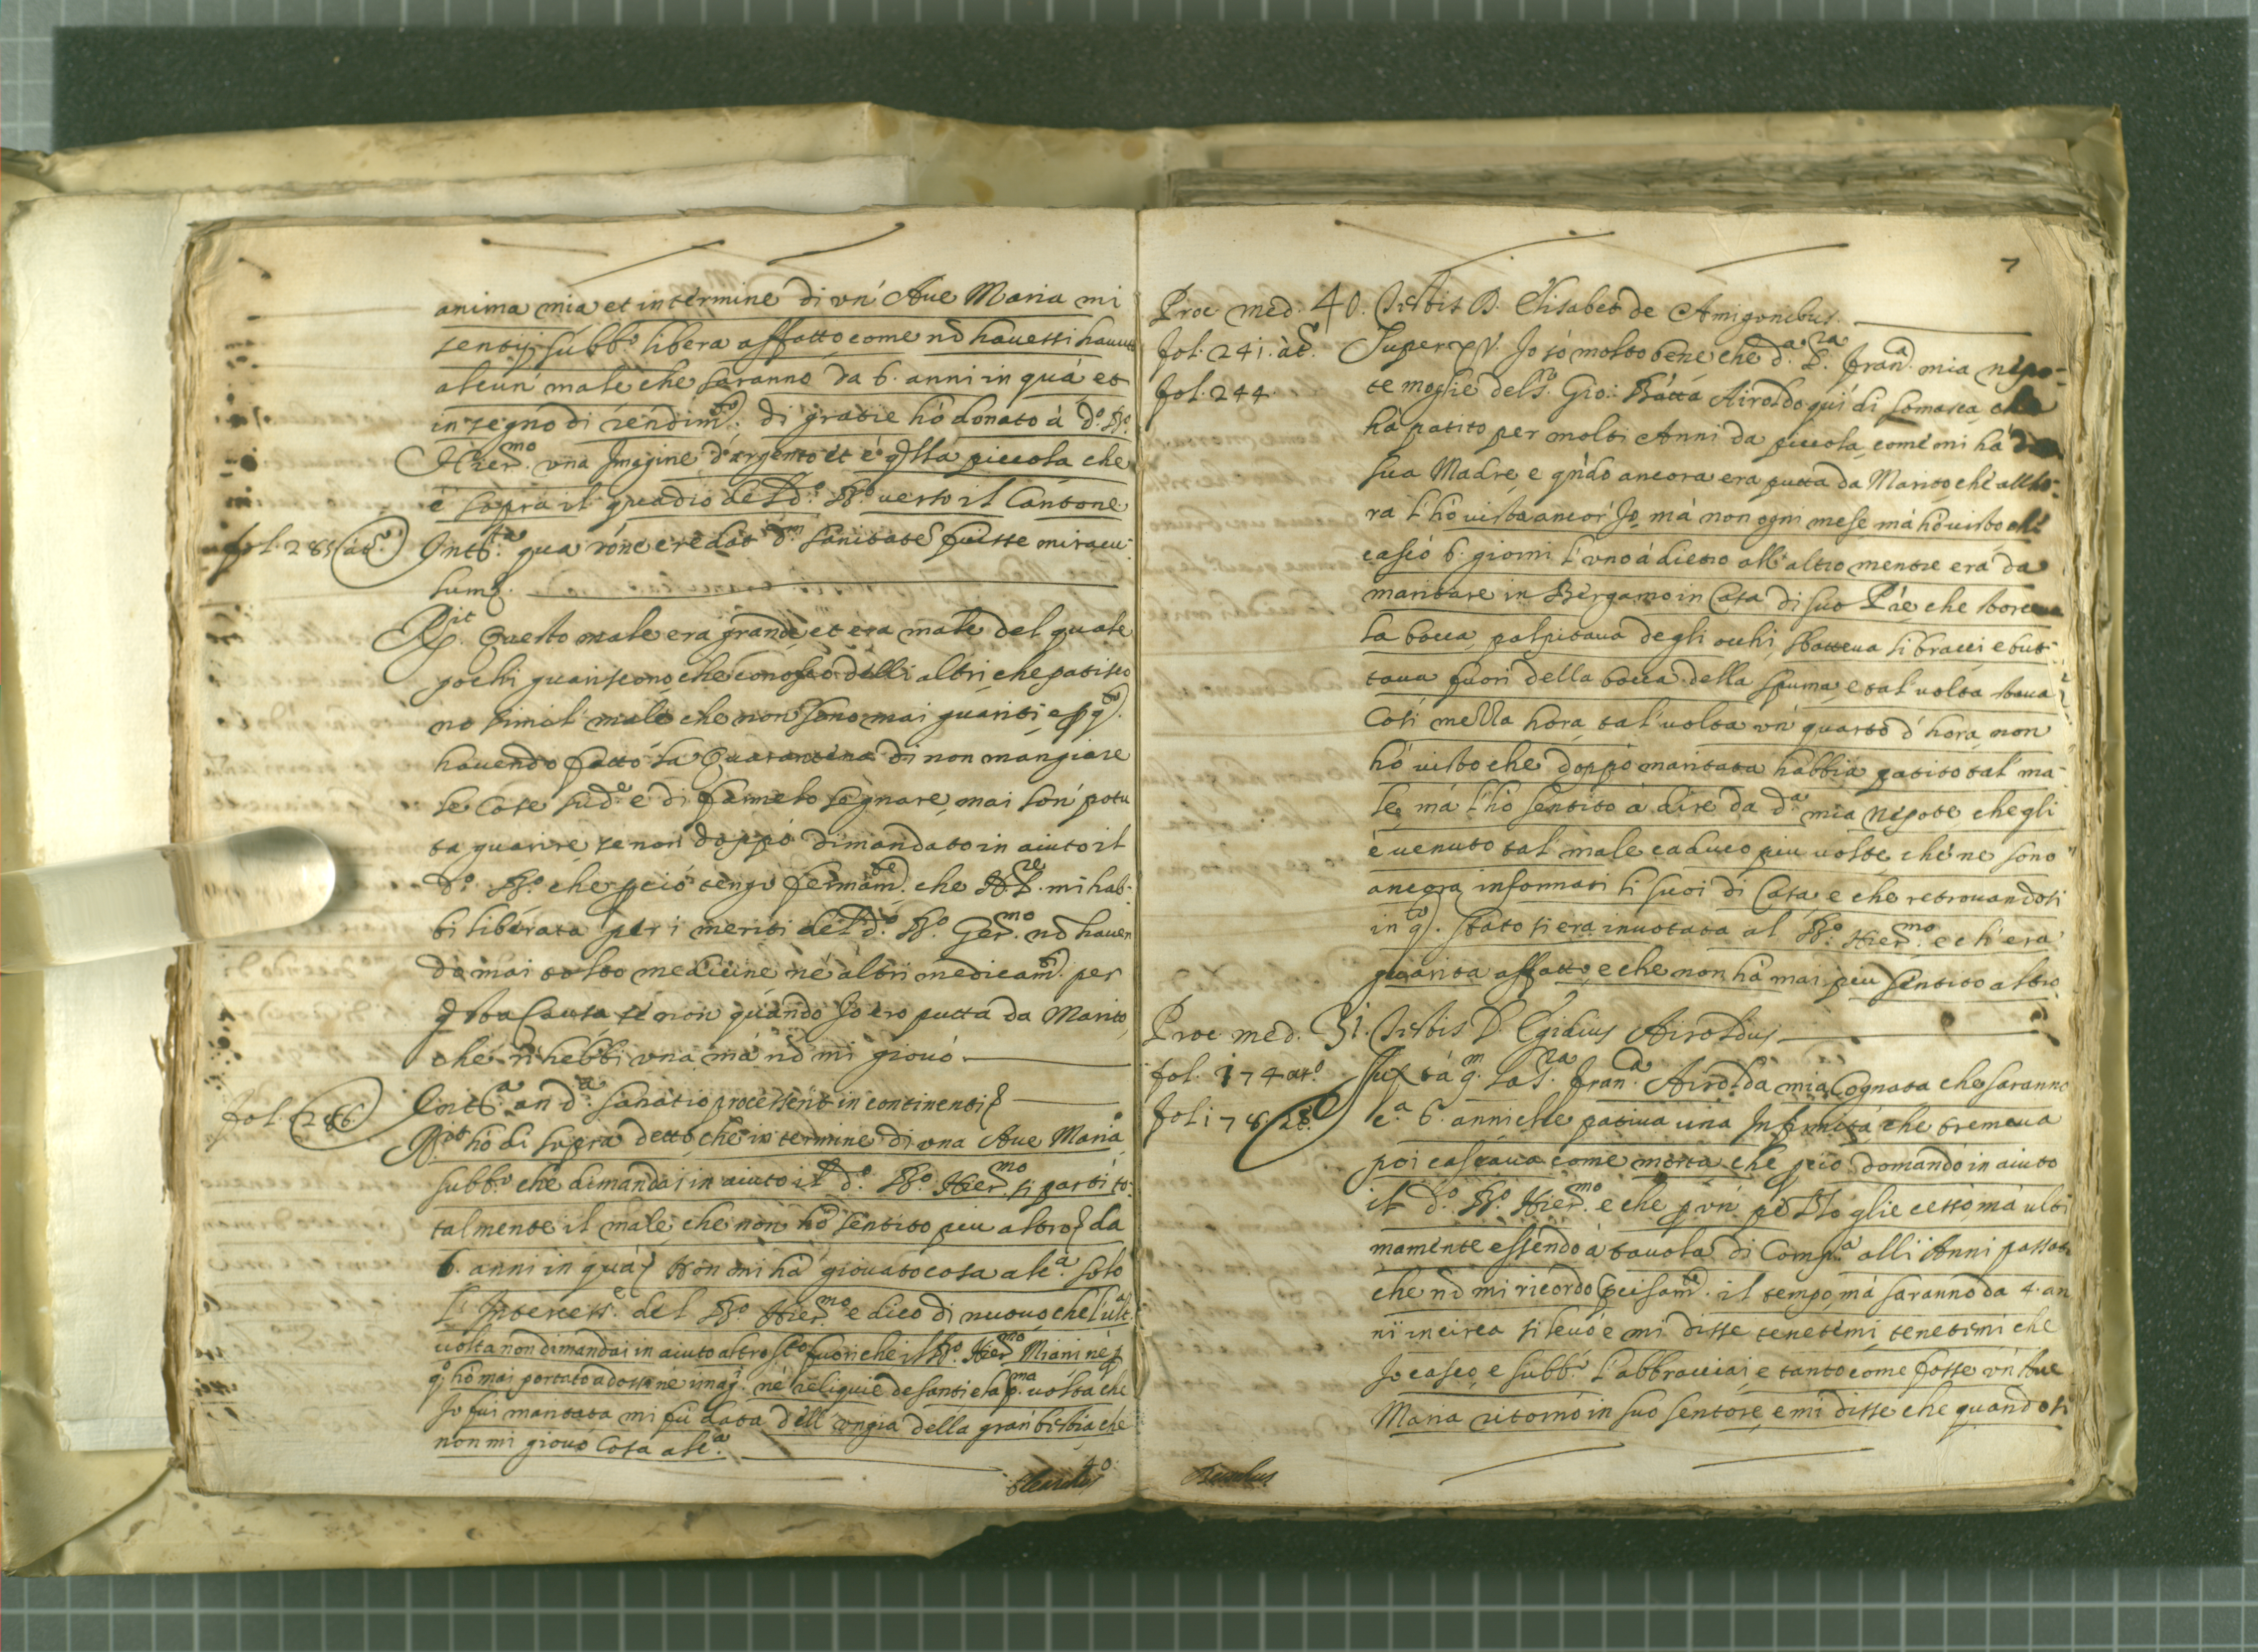 anima mia et in termine di un' Aue Maria mi
sentij subb.º libera affatto come nõ hauessi hauuto
alcun' male che saranno da 6. anni in quà et
in segno di rendim.to di gratie hò donato à d.º B.º
Hier.mo una Imagine d'argento et è q̃lla piccola che
è sopra il quadro del d.º B.º uerso il Cantone
fol. 285 at.º Int.ta qua rõne credat d.m sanitatẽ fuisse miracu-
lum.
R.it Questo male era grande et era male del quale
pochi guariscono che conosco delli altri che patisco
no simil' male che non sono mai guariti e p q.to
hauendo fatto la Quarantena di non mangiare
le cose sud.e e di farmelo segnare, mai son' potu
ta guarire se non doppò dimandato in aiuto il
d.º B.º che p ciò tengo fermam.te che N. S.re mi hab-
bi liberata per i meriti del d.º B.º Ger.mo nõ hauen
do mai tolto medicine nè altri medicam.ti per
q̃sta Causa se non quando Io ero putta da Marito,
che n'hebbi una mà nõ mi giouò
fol. 286 Int.ta an d.a sanatio processerit in continenti
R.it hò di sopra detto che in termine di una Aue Maria
subb.º che dimandai in aiuto il d.º B.º Hier.mo si partì to-
talmente il male, che non hò sentito piu altro da
6. anni in quà, Non mi hà giouato cosa alc.a solo
l'Intercess.e del B.º Hier.mo e dico di nuouo che l'ult.a
uolta non dimandai in aiuto altro S.to fuori che il B.º Hier.mo Miani nè p
q.º hò mai portato adosso nè imag.i nè reliquie de santi e la p.ma uolta che
Io fui maritata mi fù data dell'ongia della gran' bestia che
non mi giouò Cosa alc.a
40.
7
Proc. med. 40. Testis D. Elisabet de Amigonibus
fol. 241. at.º Super XV. Io sò molto bene che d.a S.ra Fran.a mia nepo-
fol. 244 te moglie del S. Gio: Batta Airoldo quì di Somasca
hà patito per molti Anni da piccola, come mi hà
sua Madre e q̃ndo ancora era putta da Marito che allho-
ra l'hò uista ancor' Io, mà non ogni mese, mà hò uisto che
cascò 6. giorni l'uno à dietro all'altro mentre era da
maritare in Bergamo in Casa di suo Pře che
la bocca, palpitaua de gli occhi, sbatteua li bracci e but-
taua fuori della bocca della spuma, e tal' uolta staua
Così mezza hora, tal' uolta un' quarto d'hora, non
hò uisto che doppò maritata habbia patito tal' ma-
le, mà l'hò sentito à dire da d.a mia Nepote che gli
è uenuto tal' male caduco piu uolte, che ne sono
ancora informati li suoi di Casa, e che retrouandosi
in q.to stato si era inuotata al B.º Hier.mo e ch'era
guarita affatto, e che non hà mai piu sentito altro.
Proc. med. 31. Testis D. Egidius Airoldus
fol. 174 at.º Iux.ta q.m La S.ra Fran.a Airolda mia Cognata che saranno
fol. 178 at.º c.a 6. anni che patiua una Infirmità, che tremaua
poi cascaua come morta che p ciò domandò in aiuto
il d.º B.º Hier.mo e che p un' pezzo glie cessò, mà ulti
mamente essendo à tauola di Comp.a alli Anni passati
che nõ mi ricordo precisam.te il tempo, mà saranno da 4. an
ni in circa si leuò e mi disse tenetemi tenetemi che
Io casco, e subb.º l'abbracciai, e tanto come fosse un' Aue
Maria ritornò in suo sentore, e mi disse che quando si